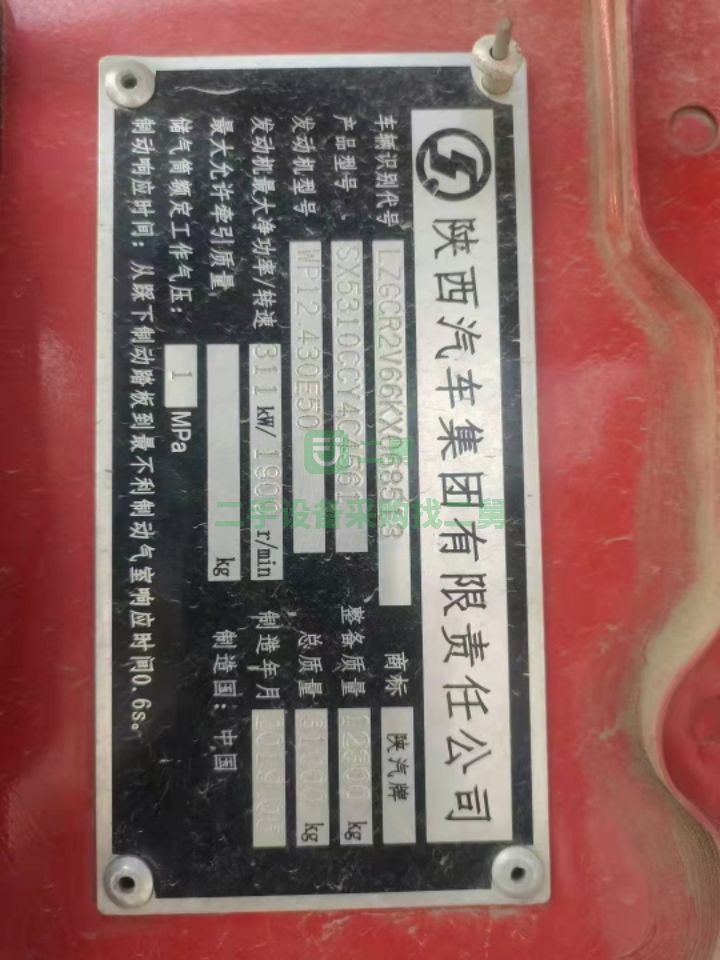 陕西汽车集团有限责任公司
车辆识别代号 商标 陕汽牌
产品型号 SX5310CCY4C4561 整备质量 kg
发动机型号 WP12.430E50 总质量 kg
发动机最大净功率/转速 311 kW/ 1900 r/min 制造年月
最大允许牵引质量 kg 制造国：中国
储气筒额定工作气压： 1 MPa
制动响应时间：从踩下制动踏板到最不利制动气室响应时间0.6s。
二手设备采购找二舅